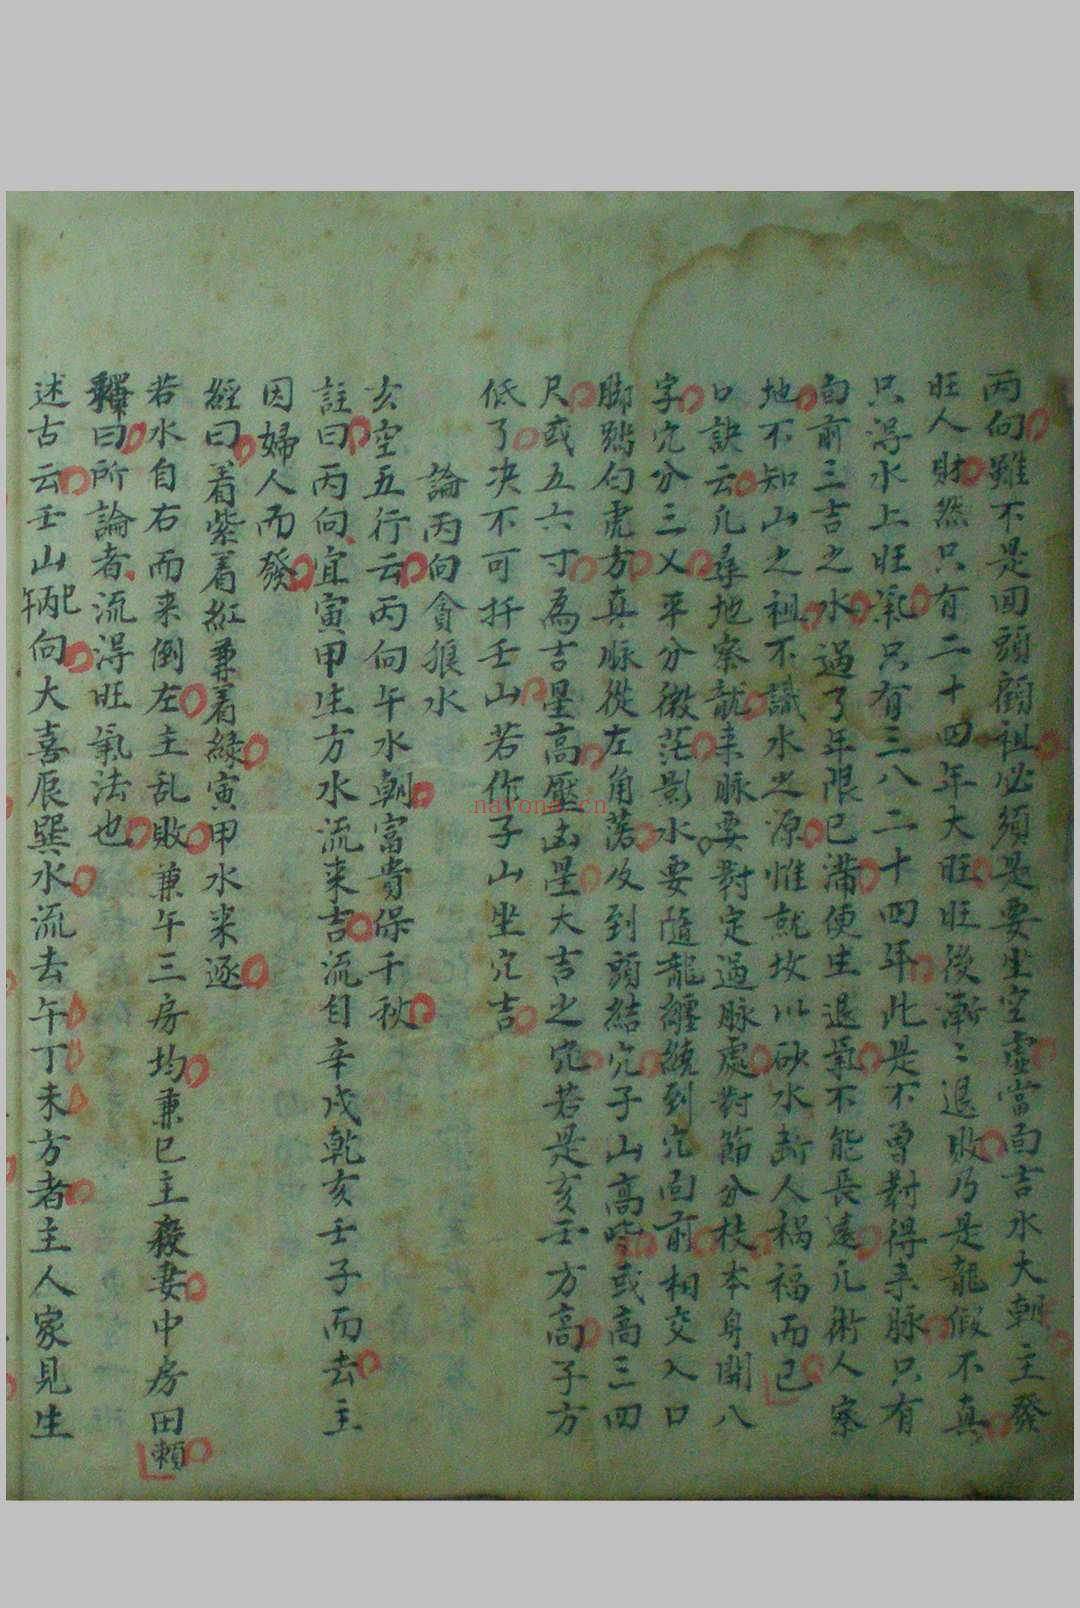 丙向雖不是回頭顧祖必須是要坐空虛當面吉水大朝主發
旺人財然只有二十四年大旺旺後漸〻退敗乃是龍假不真
只淂水上旺氣只有三八二十四年此是不曾對得来脉只有
面前三吉之水過了年限已滿便生退氣不能長遠凢術人察
地不知山之祖不識水之源惟就坟以砂水断人禍福而已
口訣云凢尋地察龍来脉要對定過脉處對節分枝本身開八
字穴分三义平分微茫影水要隨龍纏繞到穴面前相交入口
脚踏勾虎方真脉從左角落及到頭結穴子山高些或高三四
尺或五六寸為吉星高壓凶星大吉之穴若是亥壬方高子方
低了决不可扦壬山若作子山坐穴吉
論丙向貪狼水
玄空五行云丙向午水朝富貴保千秋
註曰丙向宜寅甲生方水流来吉流自辛戌乾亥壬子而去主
因婦人而發
經曰着紫着紅兼着綠寅甲水来逐
若水自右而来倒左主乱敗兼午三房均兼巳主發妻中房田
賴
釋曰所論者流淂旺氣法也
述古云壬山丙向大喜辰巽水流去午丁未方者主人家見生
nayona.cn